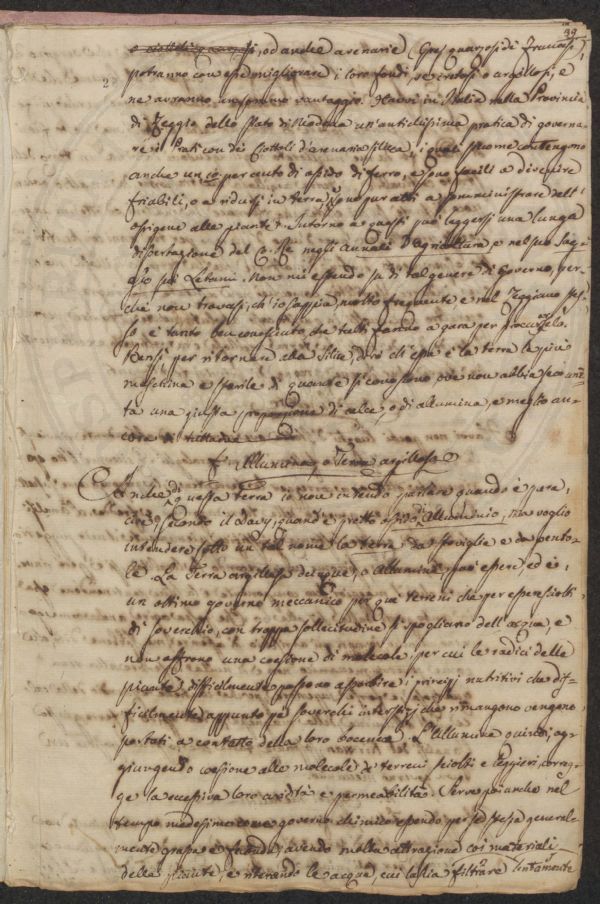 39
si, od anche arenarie (Gres quarzosi di Francia)
potranno con esse migliorare i loro fondi, se cretosi o argillosi, e
2
ne avranno un sommo vantaggio. Havvi in Italia nella Provincia
di Reggio dello Stato di Modena un'antichissima pratica di governa-
re i Prati con dei Ciottoli d'arenaria silicea, i quali siccome contengono
anche un 60 per cento di ossido di ferro, e sono facili a divenire
friabili, o a ridursi in terra, sono pur atti a somministrare dell'
ossigene alle piante. Intorno a questi può leggersi una lunga
dissertazione del C. Re negli Annali d'agricoltura, e nel suo Sag-
gio sui Letami. Non mi espando su di tal genere di Governo, per-
chè non trovasi, ch'io sappia, molto frequente e nel Reggiano stes-
so è tanto ben conosciuto che tutti fanno a gara per procurarselo.
Bensì per ritornare alla Silice, dirò ch'essa è la terra la più
meschina e sterile di quante si conoscono ove non abbia seco uni-
ta una giusta proporzione di calce, o di allumina, e meglio an-
cora di tuttadue
Allumina, o Terra argillosa
Anche di questa terra io non intendo parlare quando è pura,
cioè secondo il Davy, quand'è pretto ossido d'Alluminio, ma voglio
intendere sotto un tal nome la terra da stoviglie e da pento-
le. La Terra argillosa dunque, o Allumina può essere, ed è
un ottimo governo meccanico per que' terreni che per essere sciolti
di soverchio, con troppa sollecitudine si spogliano dell'acqua, e
non offrono una coesione di molecole, per cui le radici delle
piante difficilmente possono assorbire i principj nutritivi che dif-
ficilmente appunto pei soverchi interstizj che rimangono vengono
portati a contatto della loro boccuccia. L'Allumina quindi, ag-
giungendo coesione alle molecole di terreni sciolti e leggieri, correg-
ge la eccessiva loro aridità e permeabilità. Serve poi anche nel
tempo medesimo come governo chimico essendo per se stessa general-
mente grassa e feconda, avendo molta attrazione coi materiali
delle piante, e ritenendo le acque, cui lascia filtrare lentamente